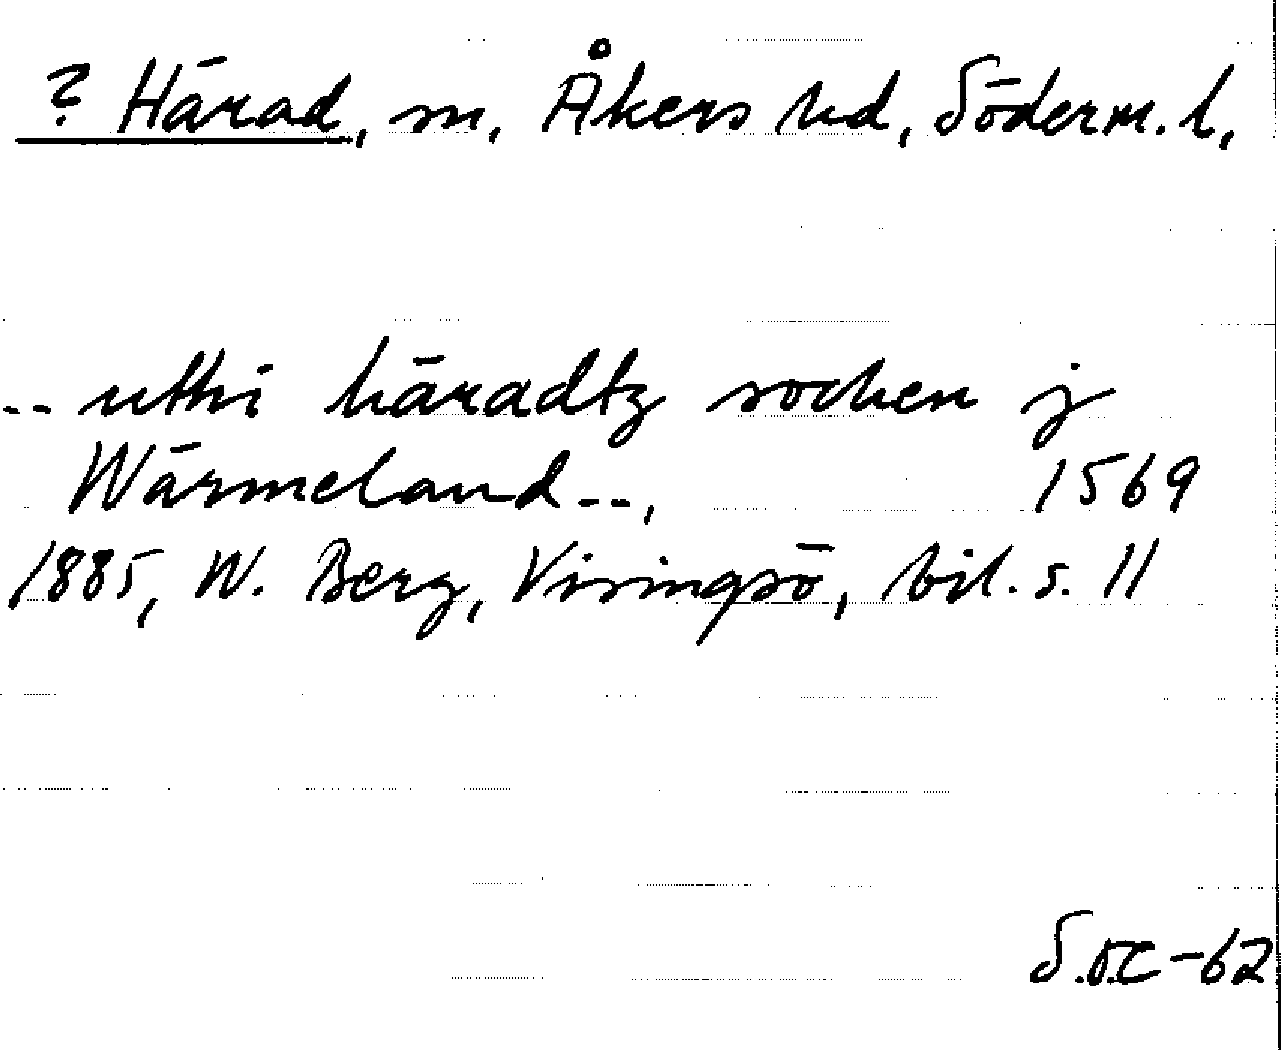 ? Härad, sn, Åkers hd, Söderm. l,
-- utthi häradtz sochen j
Wärmeland --, 1569
1885, W. Berg, Visingsö, bil. s. 11
S.O.C -62